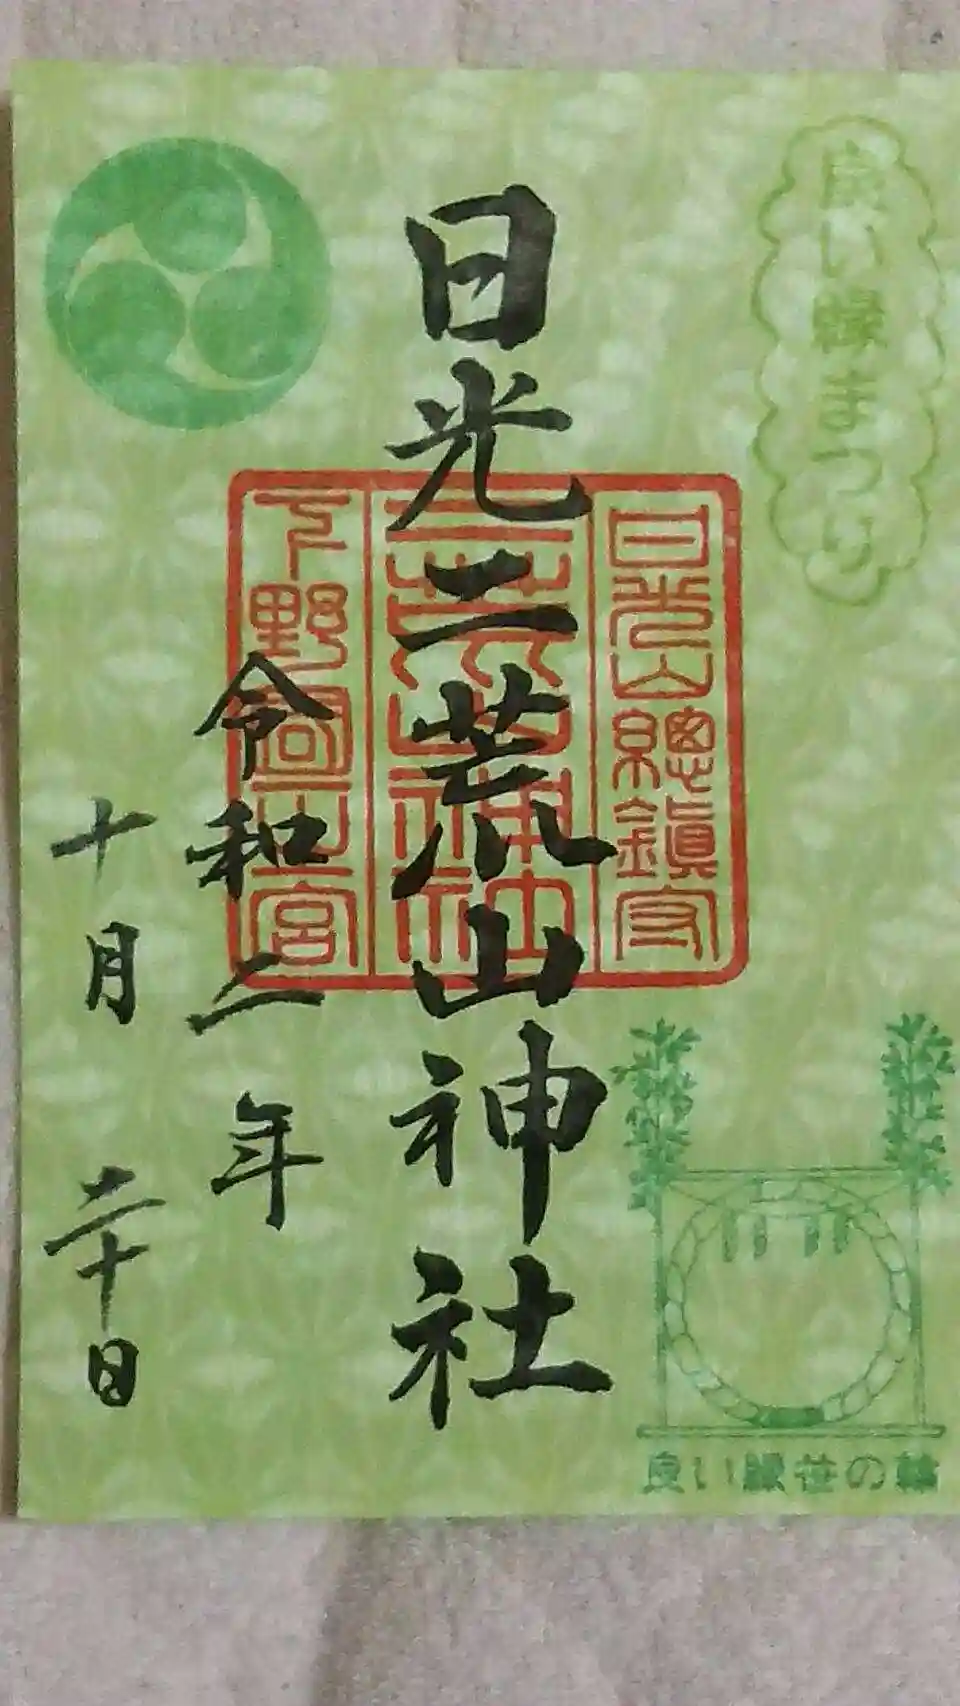 良い縁まつり
日光二荒山神社
日光山總鎮守
二荒山神社
下野國一宮
令和二年
十月二十日
良い縁笹の輪